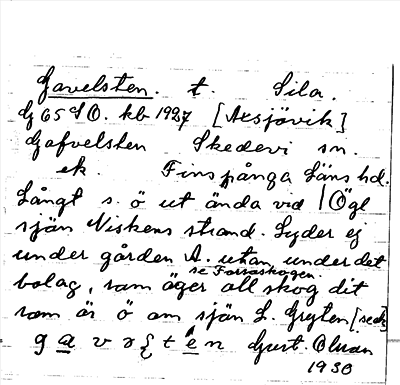 Gavelsten. t. Sila.
G 65 SO. kb 1927 [Axsjövik]
Gafvelsten Skedevi sn.
ek. Finspånga läns hd.
Långt s. ö ut ända vid | Ögl
sjön Niskens strand. Lyder ej
under gården A. utan under det
se Forsaskogen.
bolag, som äger all skog dit
som är ö om sjön L. Gryten [sedt
g a v e t e n Gust. Olman
1930